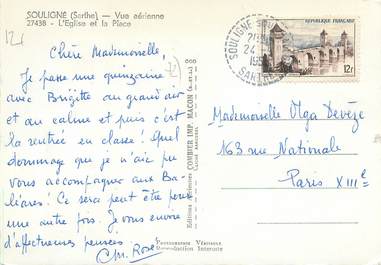 SOULIGNÉ (Sarthe) — Vue aérienne
27438 - L'Eglise et la Place
Chère Mademoiselle,
Je passe une quinzaine
avec Brigitte au grand air
et au calme et puis c'est
la rentrée en classe ! Quel
dommage que je n'aie pu
vous accompagner aux Ba-
léares ! Ce sera peut être pour
une autre fois. Je vous envoie
d'affectueuses pensées
Ch. Rose
Editions COMBIER IMP. MACON
Reproduction Interdite
SOULIGNÉ
24
SARTHE
REPUBLIQUE FRANÇAISE
12F
Mademoiselle Olga Devèze
163 rue Nationale
Paris XIIIe